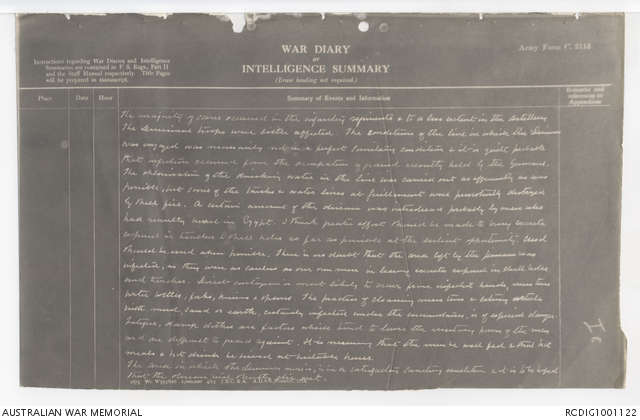 WAR DIARY
or
INTELLIGENCE SUMMARY
(Erase heading not required)
Army Form C. 2118
Instructions regarding War Diaries and Intelligence
Summaries are contained in F. S. Regs., Part II
and the Staff Manual respectively. Title Pages
will be prepared in manuscript.
Place Date Hour Summary of Events and Information Remarks and references to Appendices
The majority of cases occurred in the infantry regiments & to a less extent in the Artillery.
The Divisional troops were little affected. The conditions of the line in which the Division
was engaged was necessarily not in a perfect sanitary condition & it is quite probable
that infection occurred from the occupation of ground recently held by the Germans.
The chlorination of the drinking water in the line was carried out as efficiently as was
possible, but some of the tanks & water lines at were persistently destroyed
by shell fire. A certain amount of the disease was introduced probably by men who
had recently been in Egypt. I think greater effort should be made to bury excreta
exposed in trenches & shell holes as far as possible at the earliest opportunity.
should be used when possible. There is no doubt that the area left by the was
infected, as they were as careless as our own men in leaving excreta exposed in shell holes
and trenches. Direct contagion is most likely to occur from infected hands, mess tins
water bottles, forks, knives & spoons. The practice of cleaning mess tins & eating utensils
with mud, sand or earth, certainly infected under the circumstances, is of especial danger.
Fatigue, damp clothes are factors which tend to lower the resisting power of the men
and are difficult to guard against. It is necessary that the men be well fed & that hot
meals & hot drinks be issued at suitable hours.
The area in which the Division is in a satisfactory sanitary condition & it is to be hoped
that the disease will shortly
AUSTRALIAN WAR MEMORIAL
RCDIG1001122